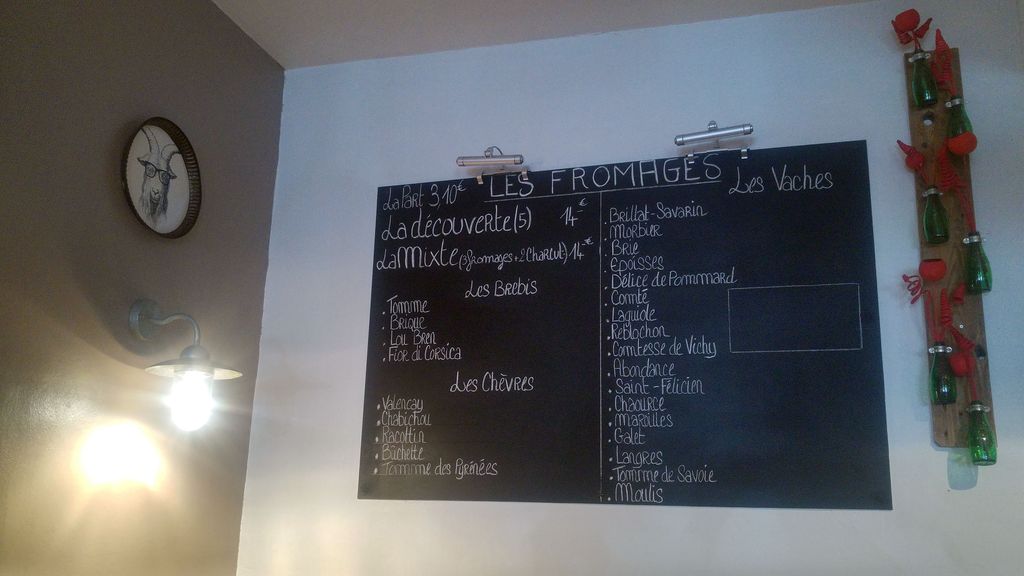 LES FROMAGES
La Part 3,10€
La découverte (5) 14€
La mixte (3 fromages + 2 Charcut) 14€
Les Brebis
. Tomme
. Brique
. Lou Bren
. Fior di Corsica
Les Chèvres
. Valencay
. Chabichou
. Racottin
. Bûchette
. Tomme des Pyrénées
Les Vaches
. Brillat-Savarin
. Morbier
. Brie
. Epoisses
. Délice de Pommard
. Comté
. Laguiole
. Reblochon
. Comtesse de Vichy
. Abondance
. Saint-Félicien
. Chaource
. Maroilles
. Galet
. Langres
. Tomme de Savoie
. Moulis